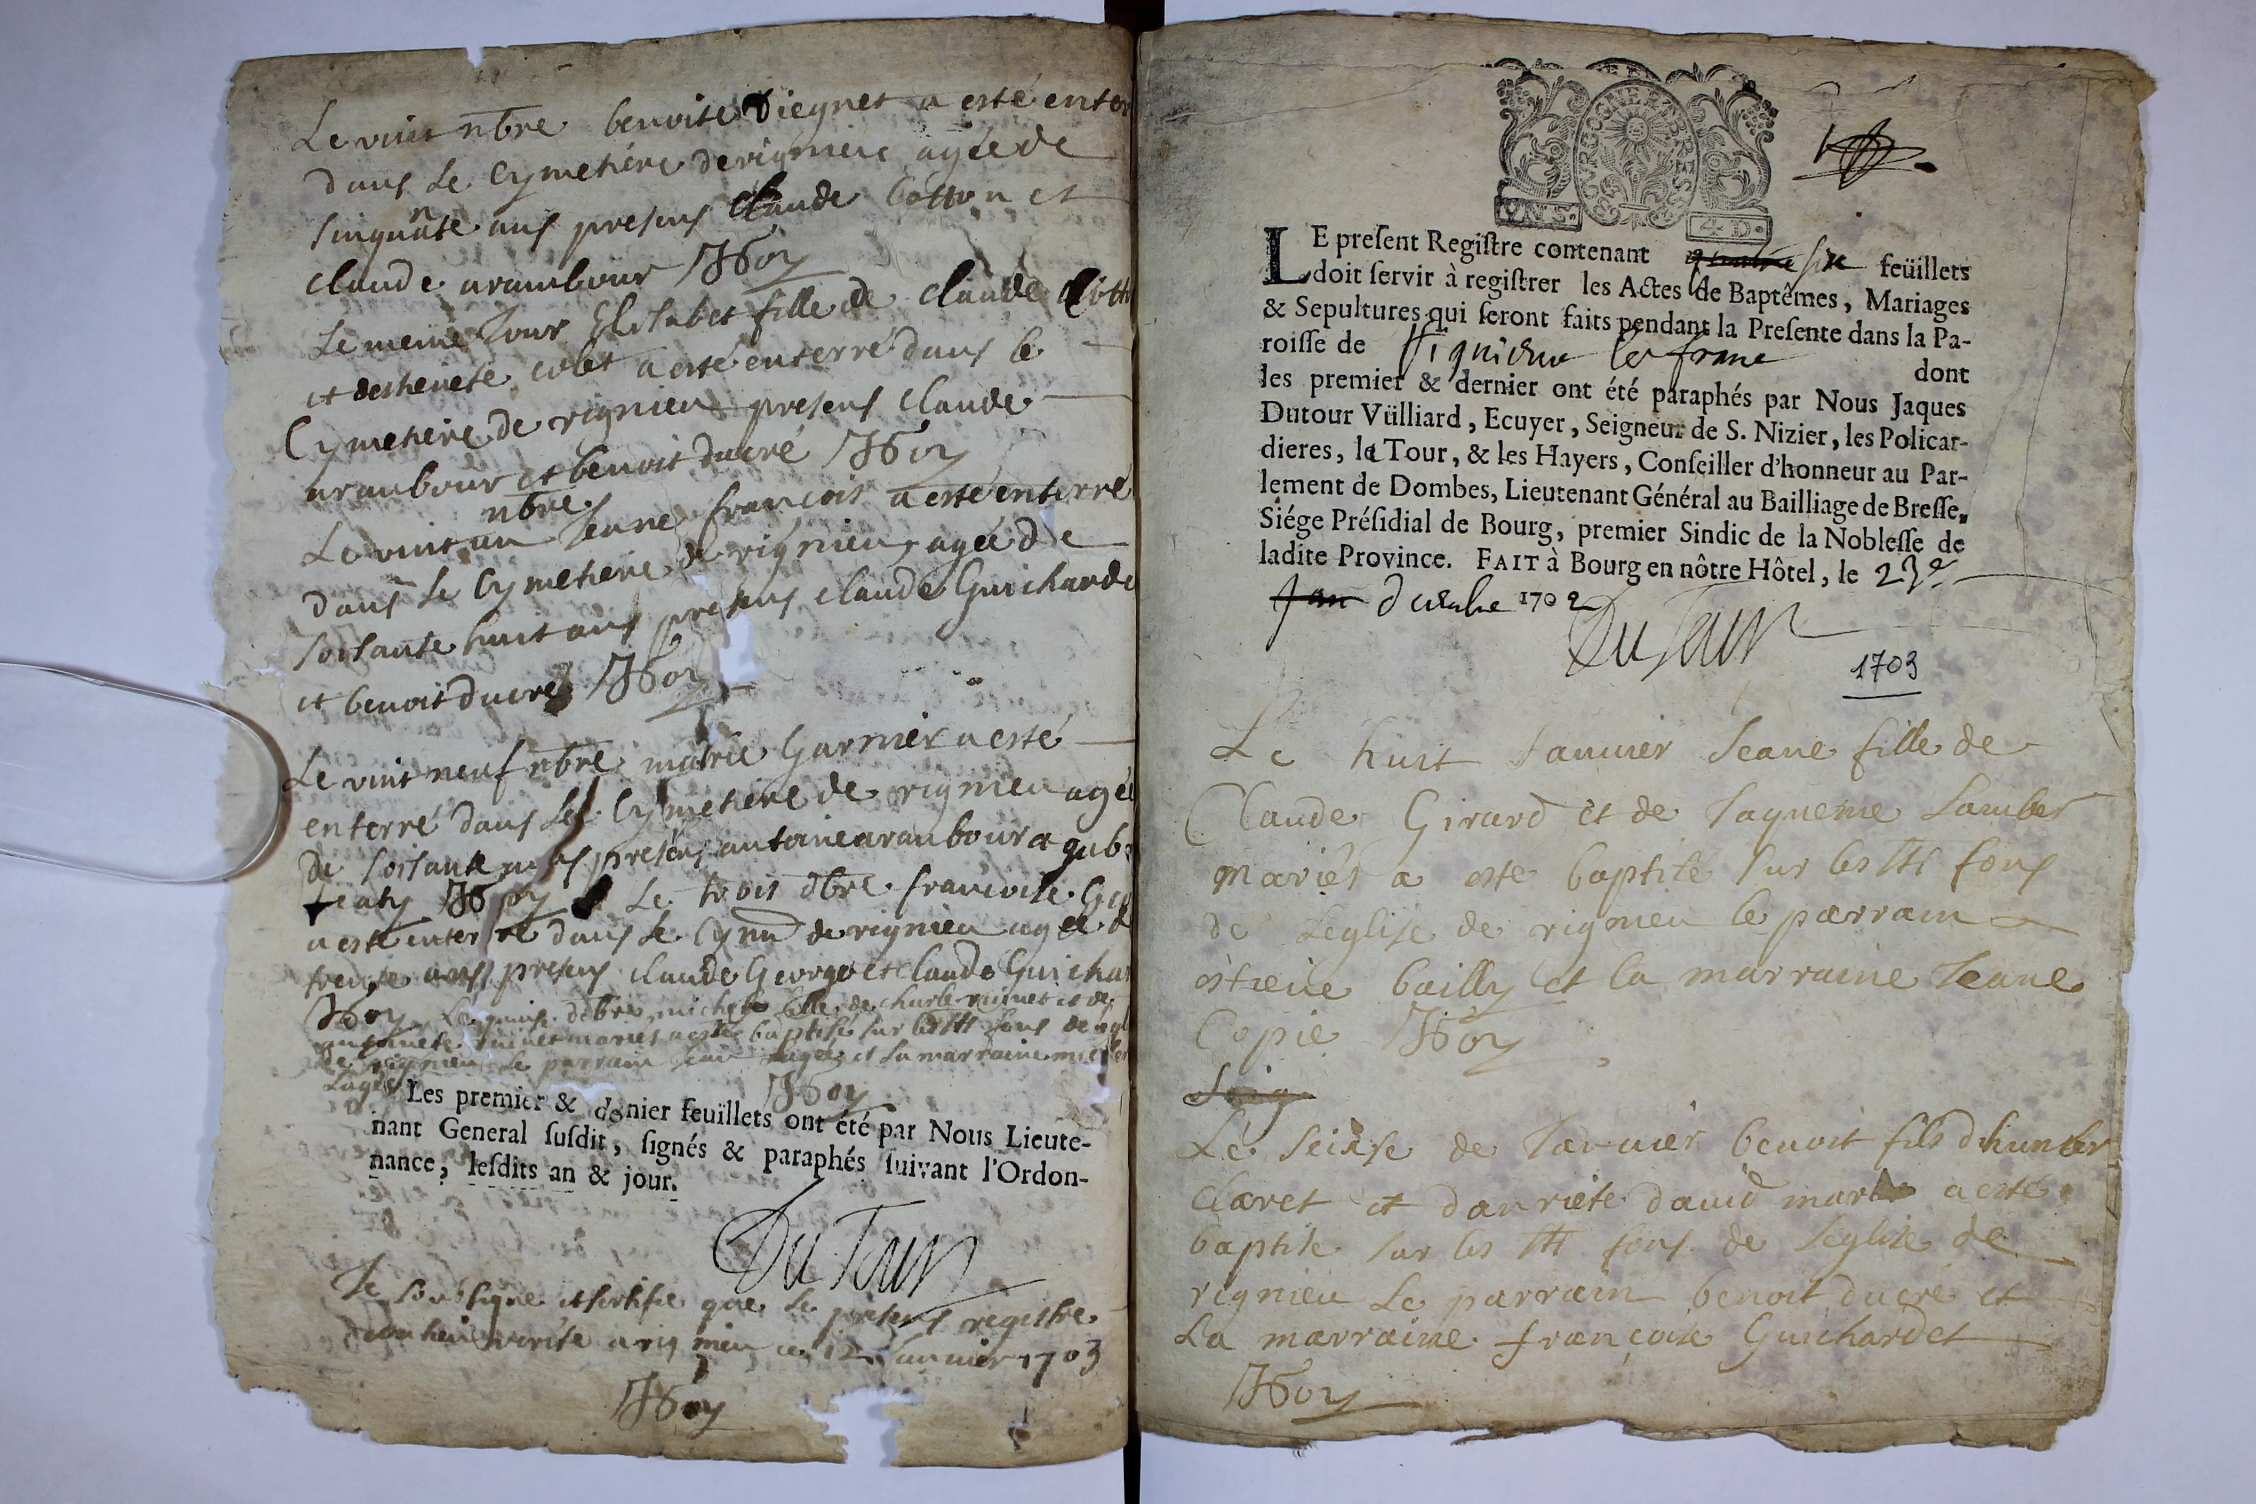 Le vint nbre benoite Viegnet a esté enter
dans Le Cymetiére de rignieu agée de
sinquante ans presens Claude Cotton et
claude arambour
Le meme Jour Elisabet fille de claude Cotto
et destienete colet a esté enterré dans le
Cymetiere de rignieu presens claude
arambour et benoit ducré
nbre
Le vint un Jeane francois a esté enterré
dans le Cymetiere de rignieu agée de
soisante huit ans presens claude Guicharde
et benoit ducré
Le vint neuf nbre Garnier a esté
enterré dans Le Cymetiere de rignieu agée
de soisante ans presens antoine arambour et
Le trois dbre francoise
a esté enterré dans le Cym de rignieu agée d
ans presens claude George et claude Guichar
dbre fille de et de
mariés a esté baptisé sur les sts fons de
de rignieu Le parrain et la marraine
Les premier & dernier feüillets ont été par Nous Lieute-
nant General susdit, signés & paraphés suivant l'Ordon-
nance, lesdits an & jour.
DuTour
Je soubsigné et sertifie que le presens registre
verité a rignieu ce 12 Janvier 1703
BOURGOGNE ET BRESSE
VN S. 4 D.
LE present Registre contenant quatre six feüillets
doit servir à registrer les Actes de Baptêmes, Mariages
& Sepultures qui seront faits pendant la Presente dans la Pa-
roisse de Rignieux le franc dont
les premier & dernier ont été paraphés par Nous Jaques
Dutour Vülliard, Ecuyer, Seigneur de S. Nizier, les Policar-
dieres, la Tour, & les Hayers, Conseiller d'honneur au Par-
lement de Dombes, Lieutenant Général au Bailliage de Bresse,
Siége Présidial de Bourg, premier Sindic de la Noblesse de
ladite Province. FAIT à Bourg en nôtre Hôtel, le 23e
1702
DuTour
1703
Le huit Janvier Jeane fille de
Claude Girard et de Jaqueme Lamber
mariés a esté baptisé sur les sts fons
de Leglise de rignieu le parrain
estiene bailly et la marraine Jeane
Copie
Le seixse de Janvier benoit fils dhumber
Claret et danriete david mariés a esté
baptisé sur les sts fons de leglise de
rignieu Le parrain benoit ducré et
La marraine françoise Guichardet